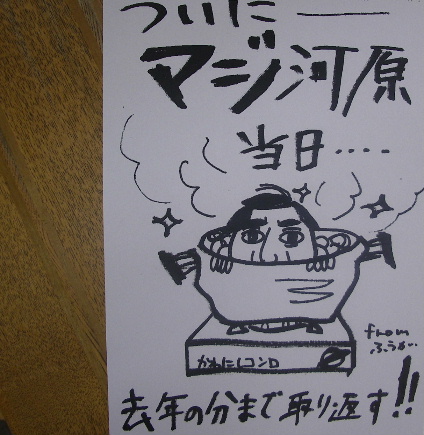 ついに——
マジ河原
当日‥‥
かわにしコンロ
from
去年の分まで取り返す!!